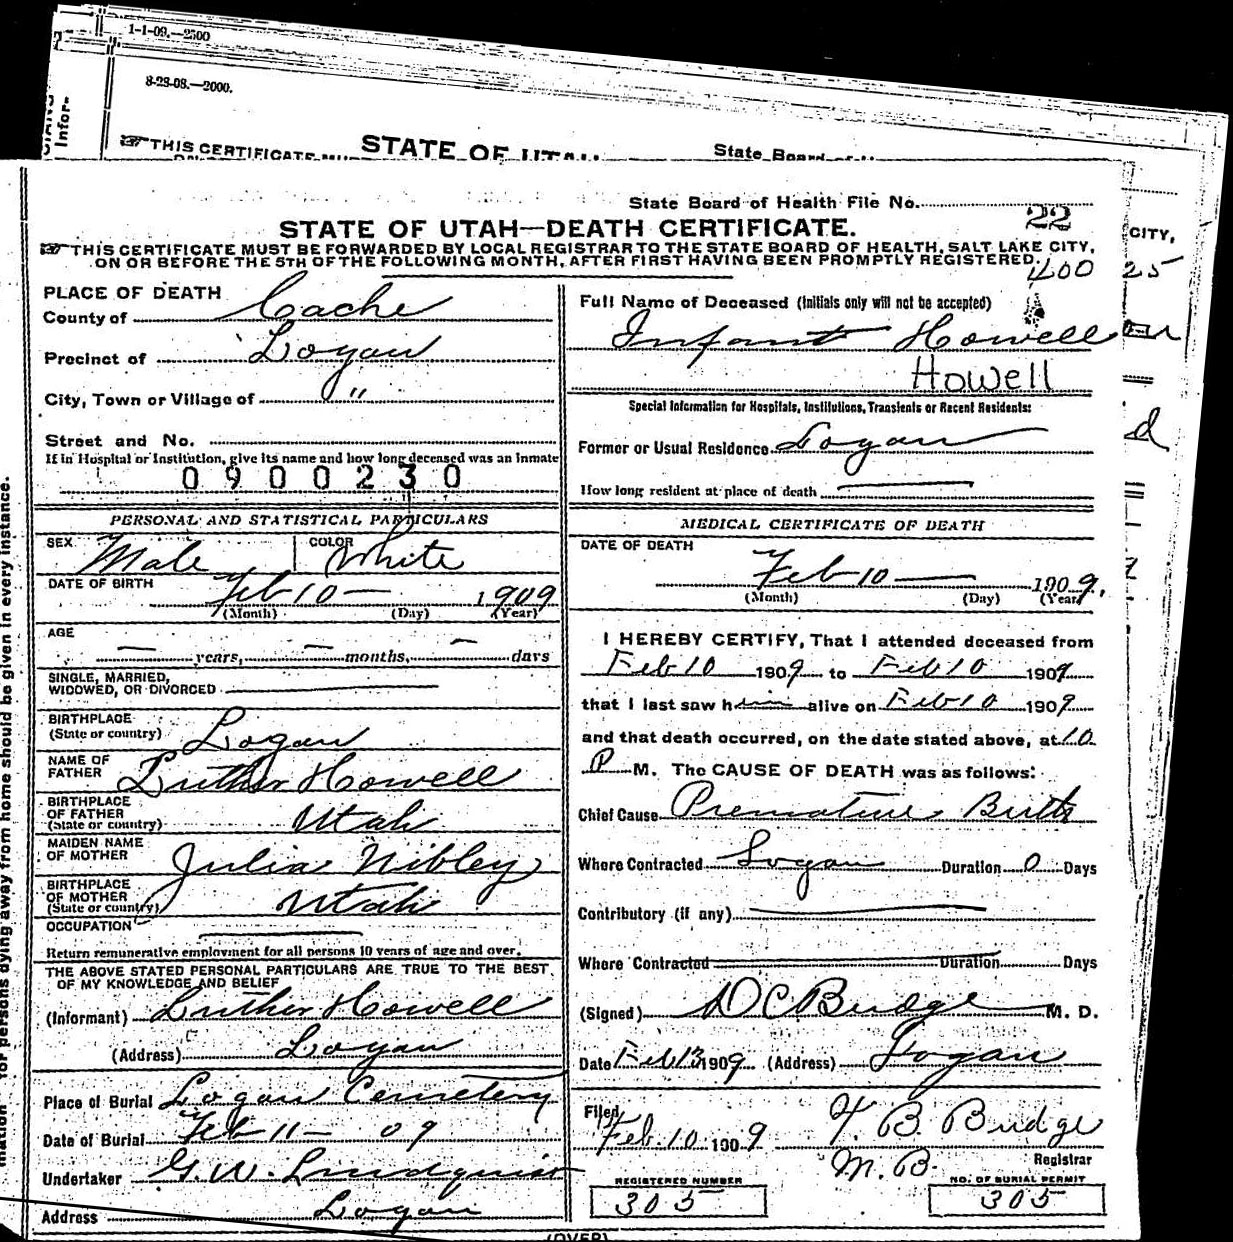 1-1-09.—2500
8-28-08.—2000.
Infor-
THIS CERTIFICATE MUS
STATE OF UTAH
State Board of H
State Board of Health File No. 22
STATE OF UTAH—DEATH CERTIFICATE.
THIS CERTIFICATE MUST BE FORWARDED BY LOCAL REGISTRAR TO THE STATE BOARD OF HEALTH, SALT LAKE CITY,
ON OR BEFORE THE 5TH OF THE FOLLOWING MONTH, AFTER FIRST HAVING BEEN PROMPTLY REGISTERED.
400
CITY,
25
d
PLACE OF DEATH
County of Cache
Precinct of Logan
City, Town or Village of "
Street and No.
If in Hospital or Institution, give its name and how long deceased was an inmate
0900230
PERSONAL AND STATISTICAL PARTICULARS
SEX Male COLOR White
DATE OF BIRTH Feb 10 — 1909
(Month) (Day) (Year)
AGE
— years, — months, — days
SINGLE, MARRIED,
WIDOWED, OR DIVORCED
BIRTHPLACE
(State or country) Logan
NAME OF
FATHER Luther Howell
BIRTHPLACE
OF FATHER
(State or country) Utah
MAIDEN NAME
OF MOTHER Julia Nibley
BIRTHPLACE
OF MOTHER
(State or country) Utah
OCCUPATION
Return remunerative employment for all persons 10 years of age and over.
THE ABOVE STATED PERSONAL PARTICULARS ARE TRUE TO THE BEST
OF MY KNOWLEDGE AND BELIEF
(Informant) Luther Howell
(Address) Logan
Place of Burial Logan Cemetery
Date of Burial Feb 11 — 09
Undertaker G. W. Lindquist
Address Logan
Full Name of Deceased (Initials only will not be accepted)
Infant Howell
Howell
Special Information for Hospitals, Institutions, Transients or Recent Residents:
Former or Usual Residence Logan
How long resident at place of death
MEDICAL CERTIFICATE OF DEATH
DATE OF DEATH
Feb 10 — 1909.
(Month) (Day) (Year)
I HEREBY CERTIFY, That I attended deceased from
Feb 10 1909 to Feb 10 1909
that I last saw him alive on Feb 10 1909
and that death occurred, on the date stated above, at 10
P M. The CAUSE OF DEATH was as follows:
Chief Cause Premature Birth
Where Contracted Logan Duration 0 Days
Contributory (if any)
Where Contracted Duration Days
(Signed) D C Budge M. D.
Date Feb 13 1909 (Address) Logan
Filed
Feb. 10. 1909 T. B. Budge
M. B. Registrar
REGISTERED NUMBER NO. OF BURIAL PERMIT
305 305
(OVER)
mation for persons dying away from home should be given in every instance.